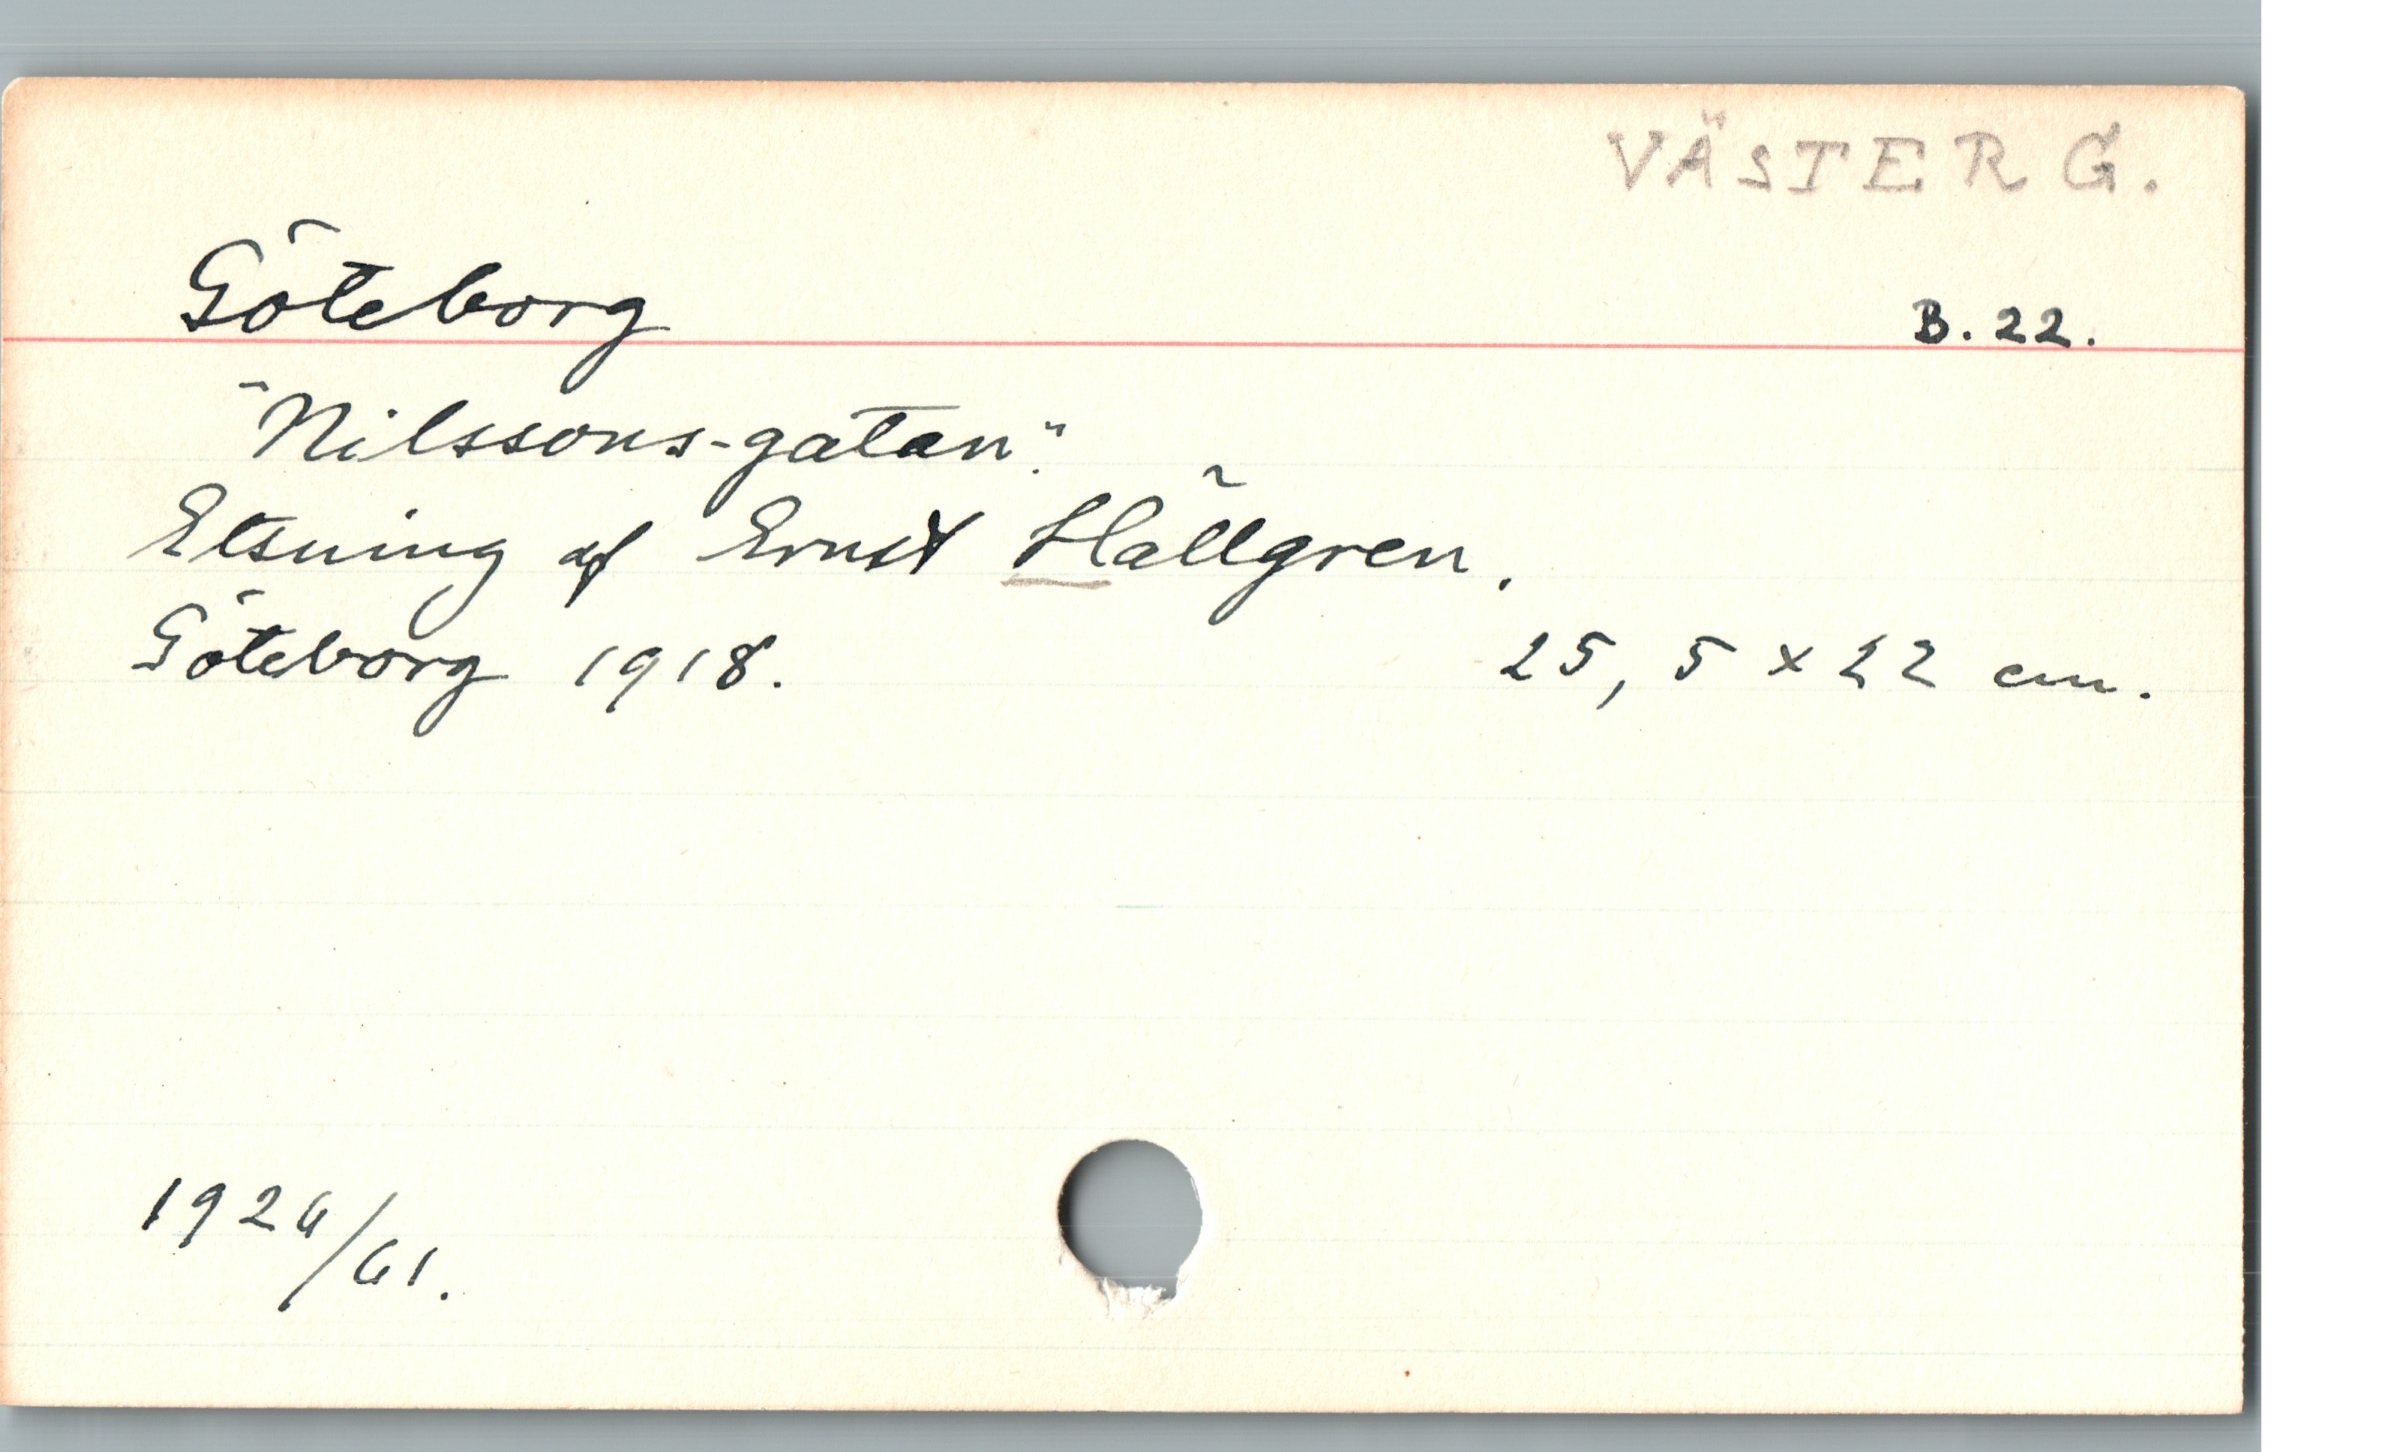 VÄSTERG.
Göteborg
B. 22.
"Nilssons-gatan".
Etsning af Ernst Hällgren.
Göteborg 1918. 25,5 x 22 cm.